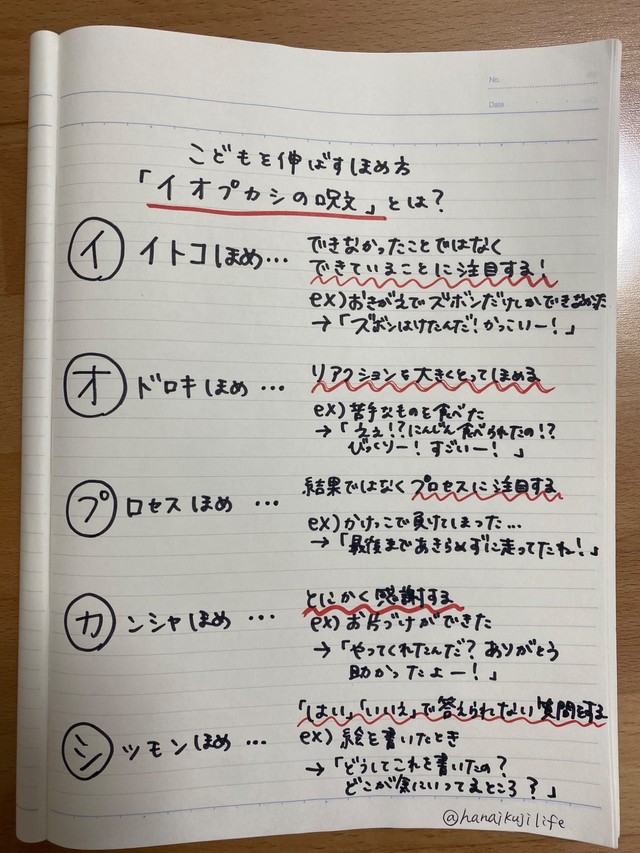 No.
Date
こどもを伸ばすほめ方
「イオプカシの呪文」とは?
イ イトコほめ… できなかったことではなく
できていることに注目する!
ex)おきがえでズボンだけしかできなかった
→「ズボンはけたんだ!かっこいー!」
オ ドロキほめ … リアクションを大きくとってほめる
ex)苦手なものを食べた
→「ええ!?にんじん食べられたの!?
びっくりー!すごいー!」
プ ロセスほめ … 結果ではなくプロセスに注目する
ex)かけっこで負けてしまった…
→「最後まであきらめずに走ってたね!」
カ ンシャほめ … とにかく感謝する
ex)お片づけができた
→「やってくれたんだ?ありがとう
助かったよー!」
シ ツモンほめ … 「はい」「いいえ」で答えられない質問をする
ex)絵を書いたとき
→「どうしてこれを書いたの?
どこが気にいってるところ?」
@hanaikujilife